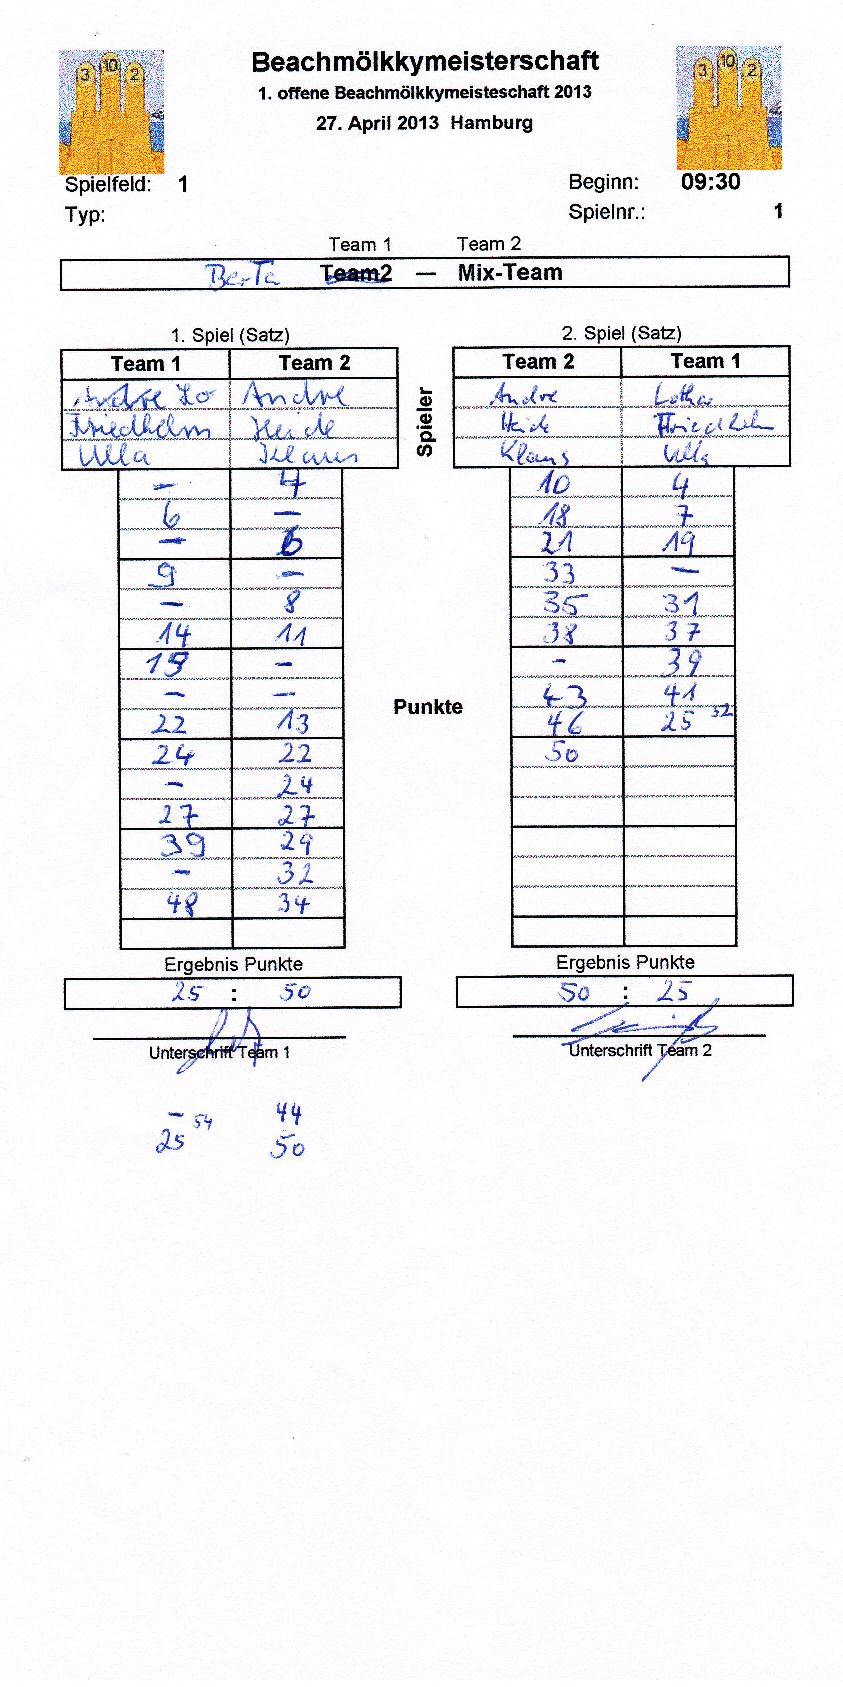 3 10 2
Beachmölkkymeisterschaft
3 10 2
1. offene Beachmölkkymeisteschaft 2013
27. April 2013 Hamburg
Spielfeld: 1 Beginn: 09:30
Typ: Spielnr.: 1
Team 1 Team 2
BerTa Team2 — Mix-Team
1. Spiel (Satz) 2. Spiel (Satz)
Team 1 Team 2 Team 2 Team 1
Spieler
Andre Lo Andre Andre Lothar
Friedhelm Heide Heide Friedhelm
Ulla Klaus Klaus Ulla
– 4 10 4
6 – 18 7
– 6 21 19
9 – 33 –
– 8 35 31
14 11 38 37
19 – – 39
– – 43 41
Punkte
22 13 46 25 52
24 22 50
– 24
27 27
39 29
– 32
48 34
Ergebnis Punkte Ergebnis Punkte
25 : 50 50 : 25
Unterschrift Team 1 Unterschrift Team 2
– 44
25 54 50